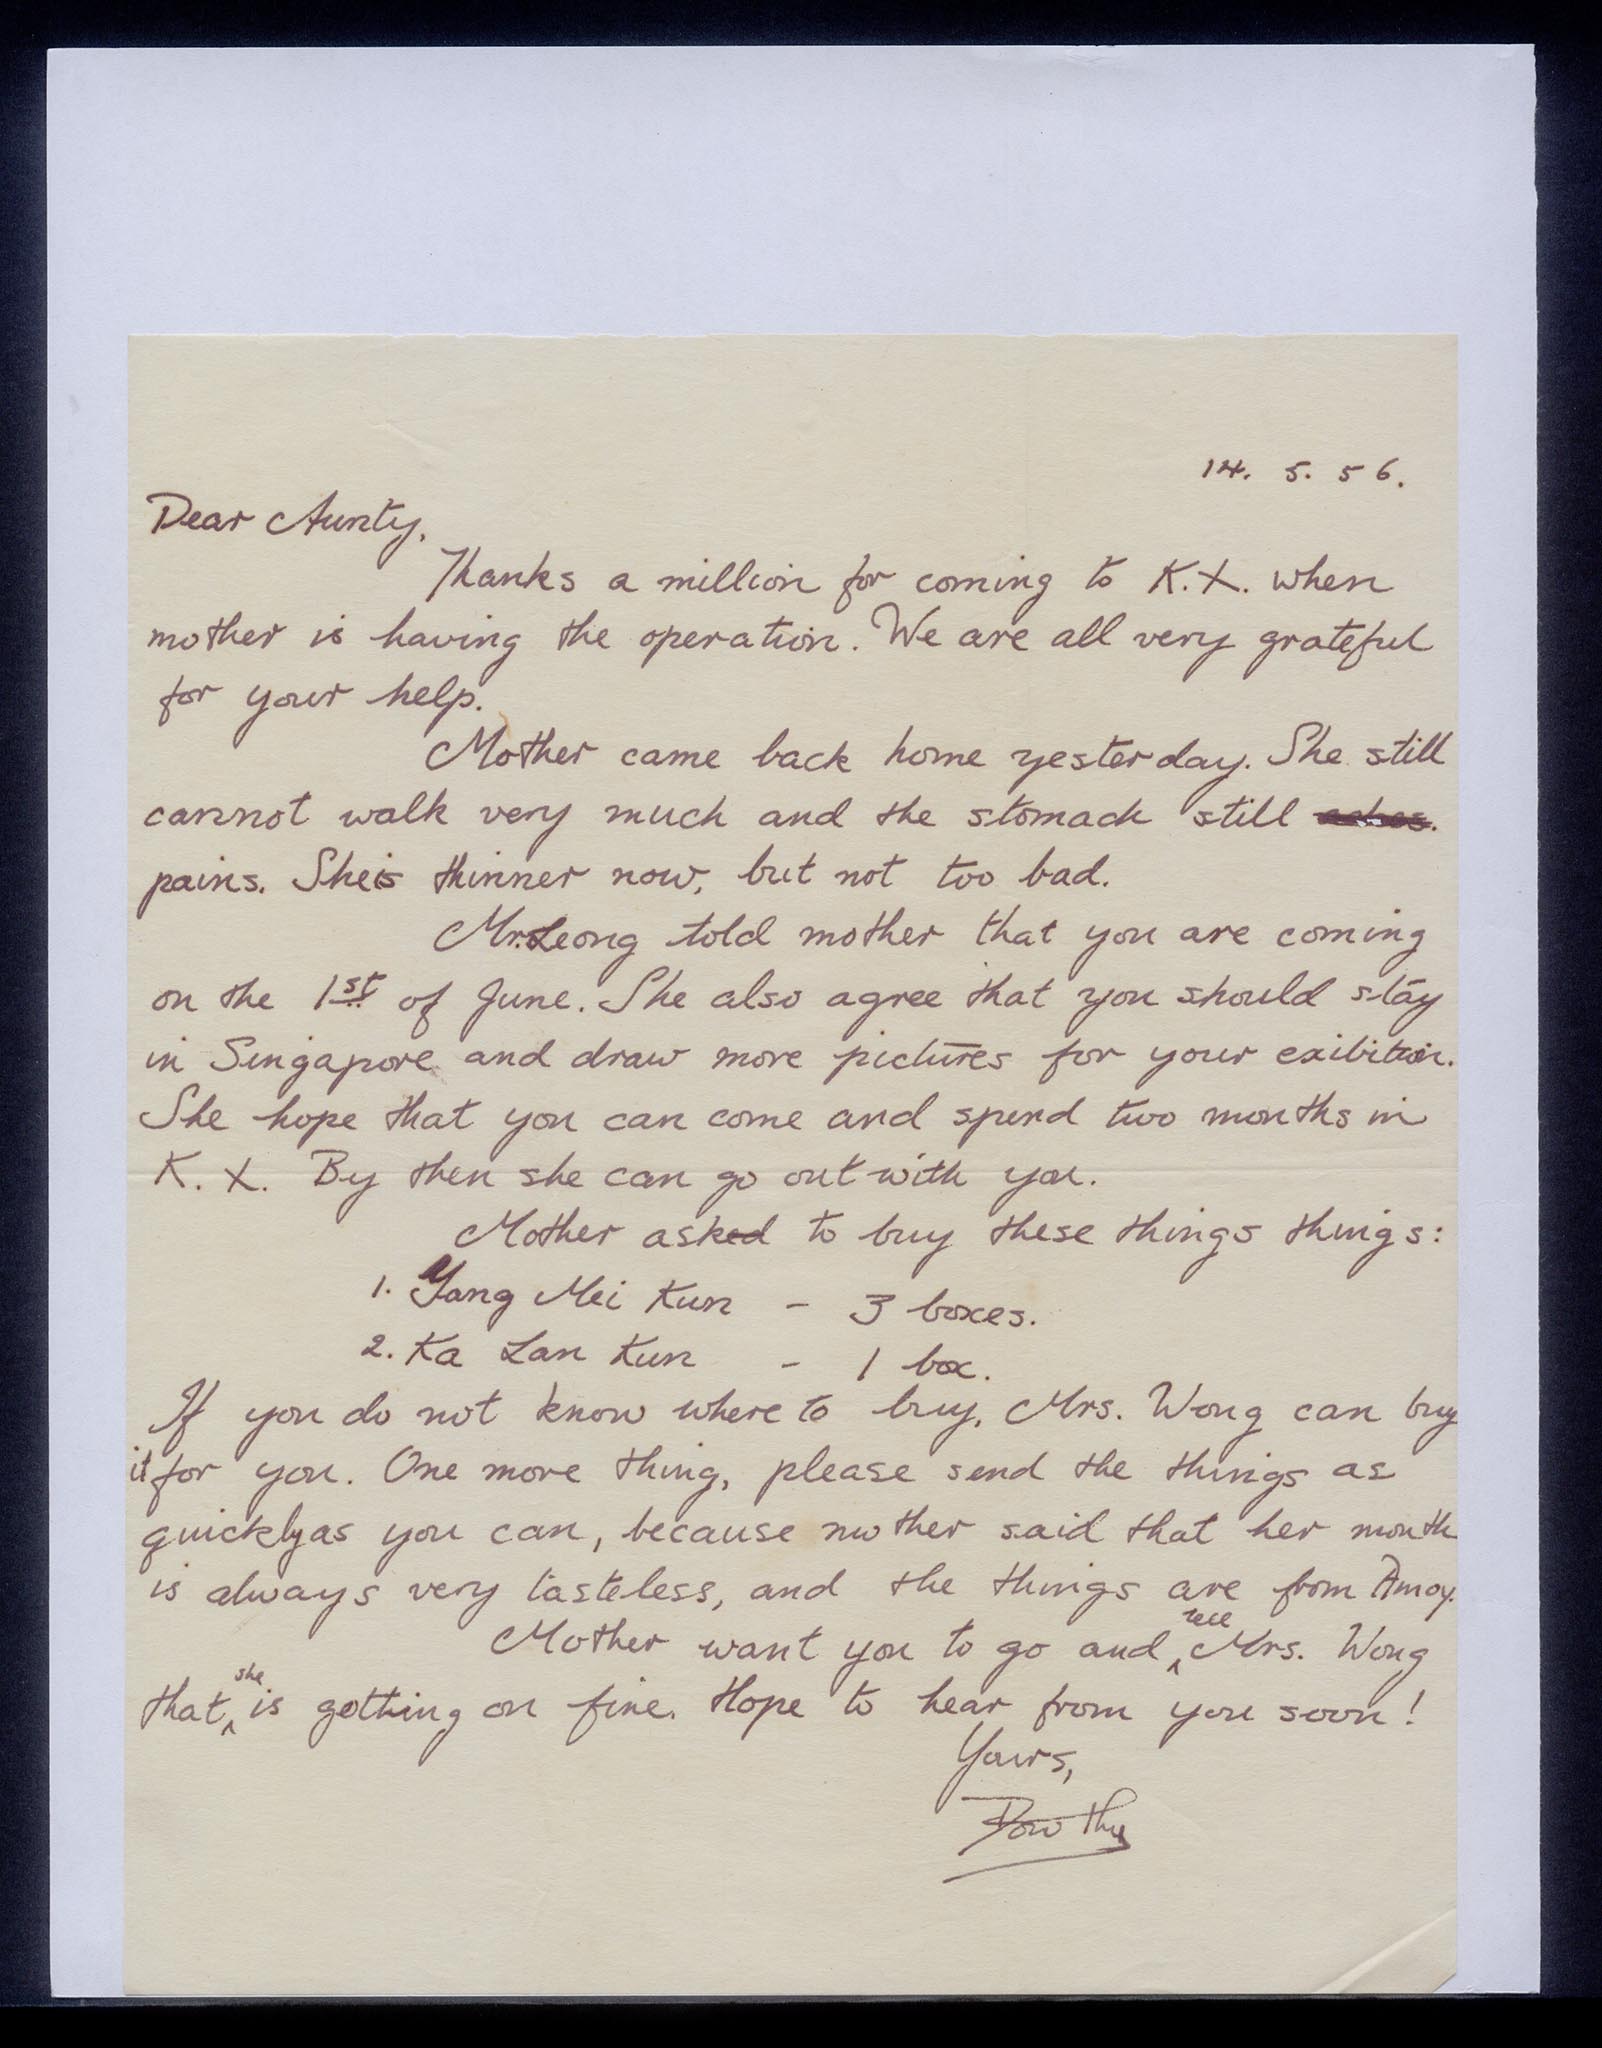 14. 5. 56.
Dear Aunty,
Thanks a million for coming to K.X. when
mother is having the operation. We are all very grateful
for your help.
Mother came back home yesterday. She still
cannot walk very much and the stomach still
pains. She is thinner now, but not too bad.
Mr. Leong told mother that you are coming
on the 1st of June. She also agree that you should stay
in Singapore and draw more pictures for your exibition.
She hope that you can come and spend two months in
K. X. By then she can go out with you.
Mother asked to buy these things things:
1. Yang Mei Kun - 3 boxes.
2. Ka Lan Kun - 1 box.
If you do not know where to buy, Mrs. Wong can buy
it for you. One more thing, please send the things as
quickly as you can, because mother said that her mouth
is always very tasteless, and the things are from Amoy.
Mother want you to go and tell Mrs. Wong
that she is getting on fine. Hope to hear from you soon!
Yours,